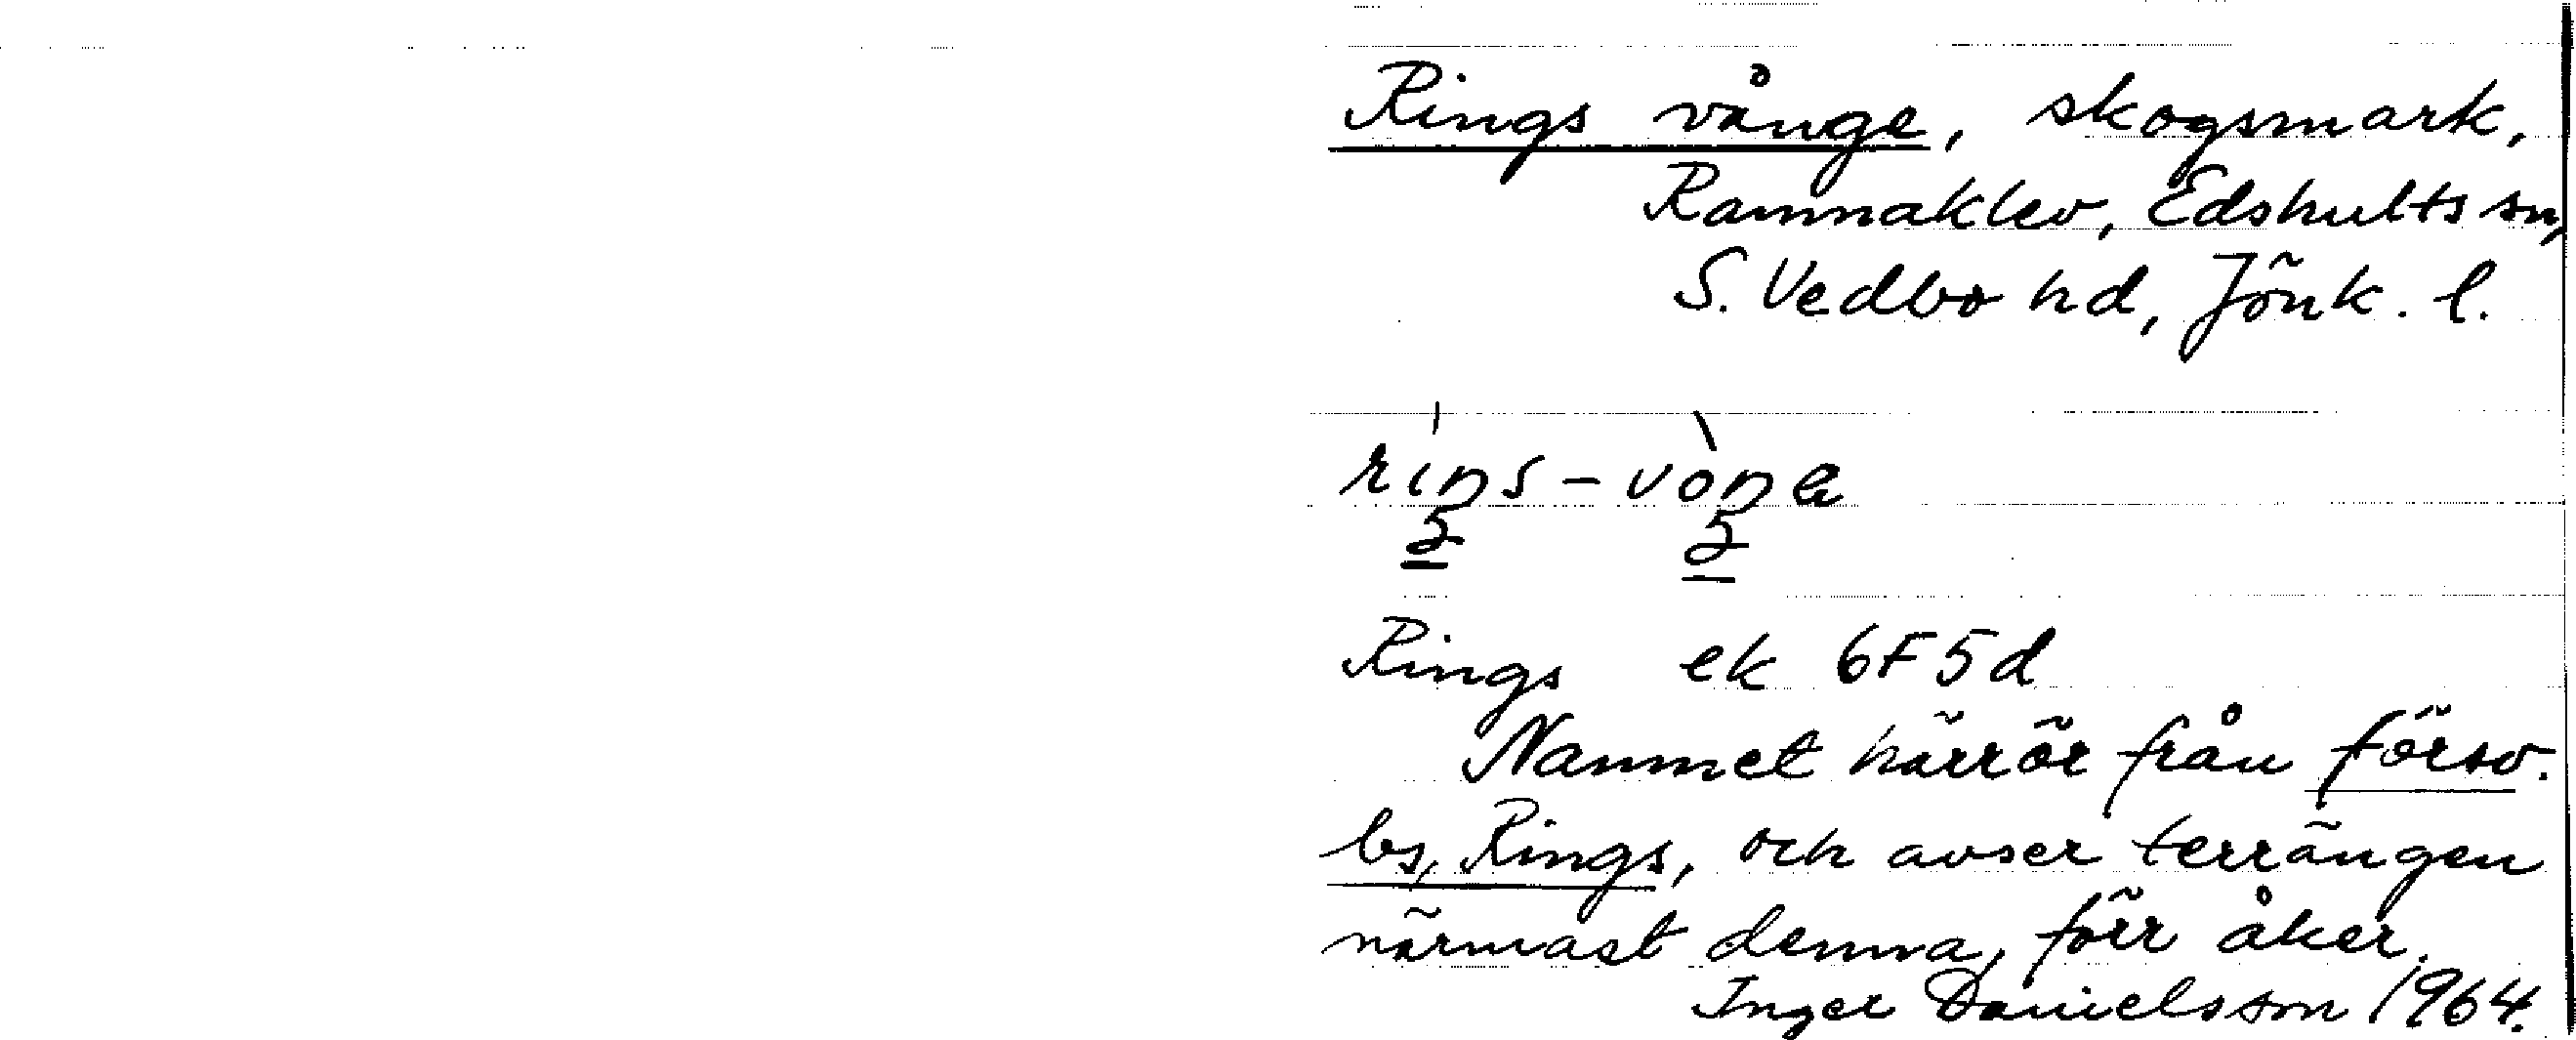 Rings vånge, skogsmark,
Ramnaklev, Edshults sn,
S. Vedbo hd, Jönk. l.
riŋs - vòŋe
Rings ek 6F5d
Namnet härrör från försv.
bs, Rings, och avser terrängen
närmast denna, förr åker.
Inger Danielsson 1964.